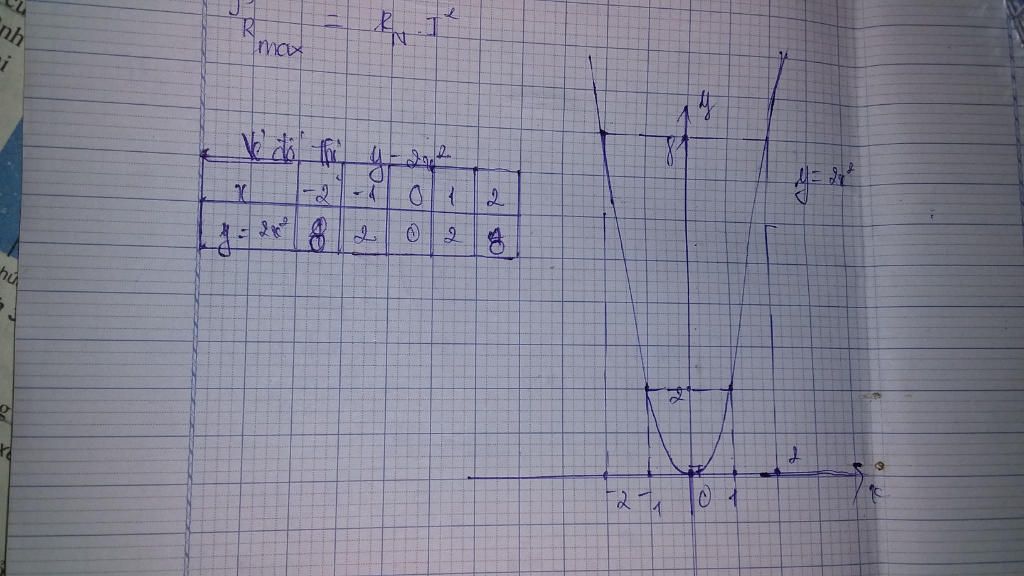 R max = R N . I²
Vẽ đồ thị y = 2x²
x -2 -1 0 1 2
y = 2x² 8 2 0 2 8
y
8
y = 2x²
2
2
-2 -1 0 1 x